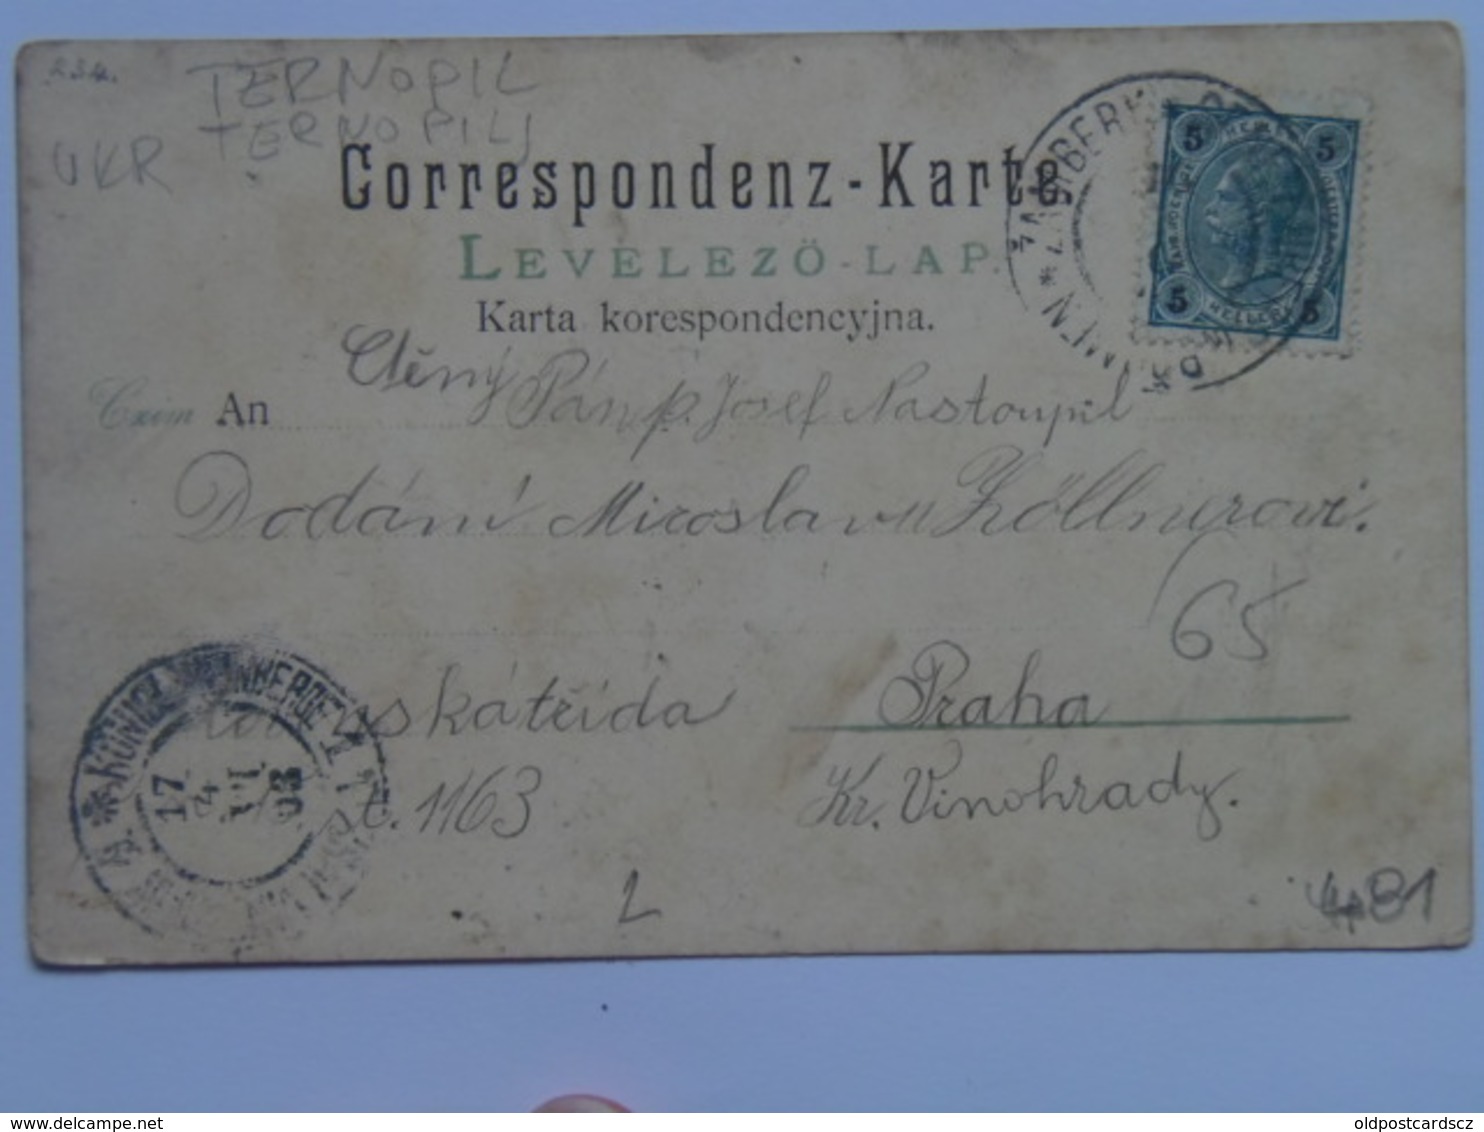 TERNOPIL
UKR TERNOPILJ
Correspondenz-Karte.
LEVELEZŐ-LAP.
Karta korespondencyjna.
5 5
5 HELLER 5
ŽAMBERK
An
Ctěný Pán p. Josef Nastoupil
Dodání Miroslavu Zöllnerovi.
65
třída Praha
čt. 1163 Kr. Vinohrady.
KÖNIGL. WEINBERGE 1
17
4
VII
03
L
481
www.delcampe.net oldpostcardscz